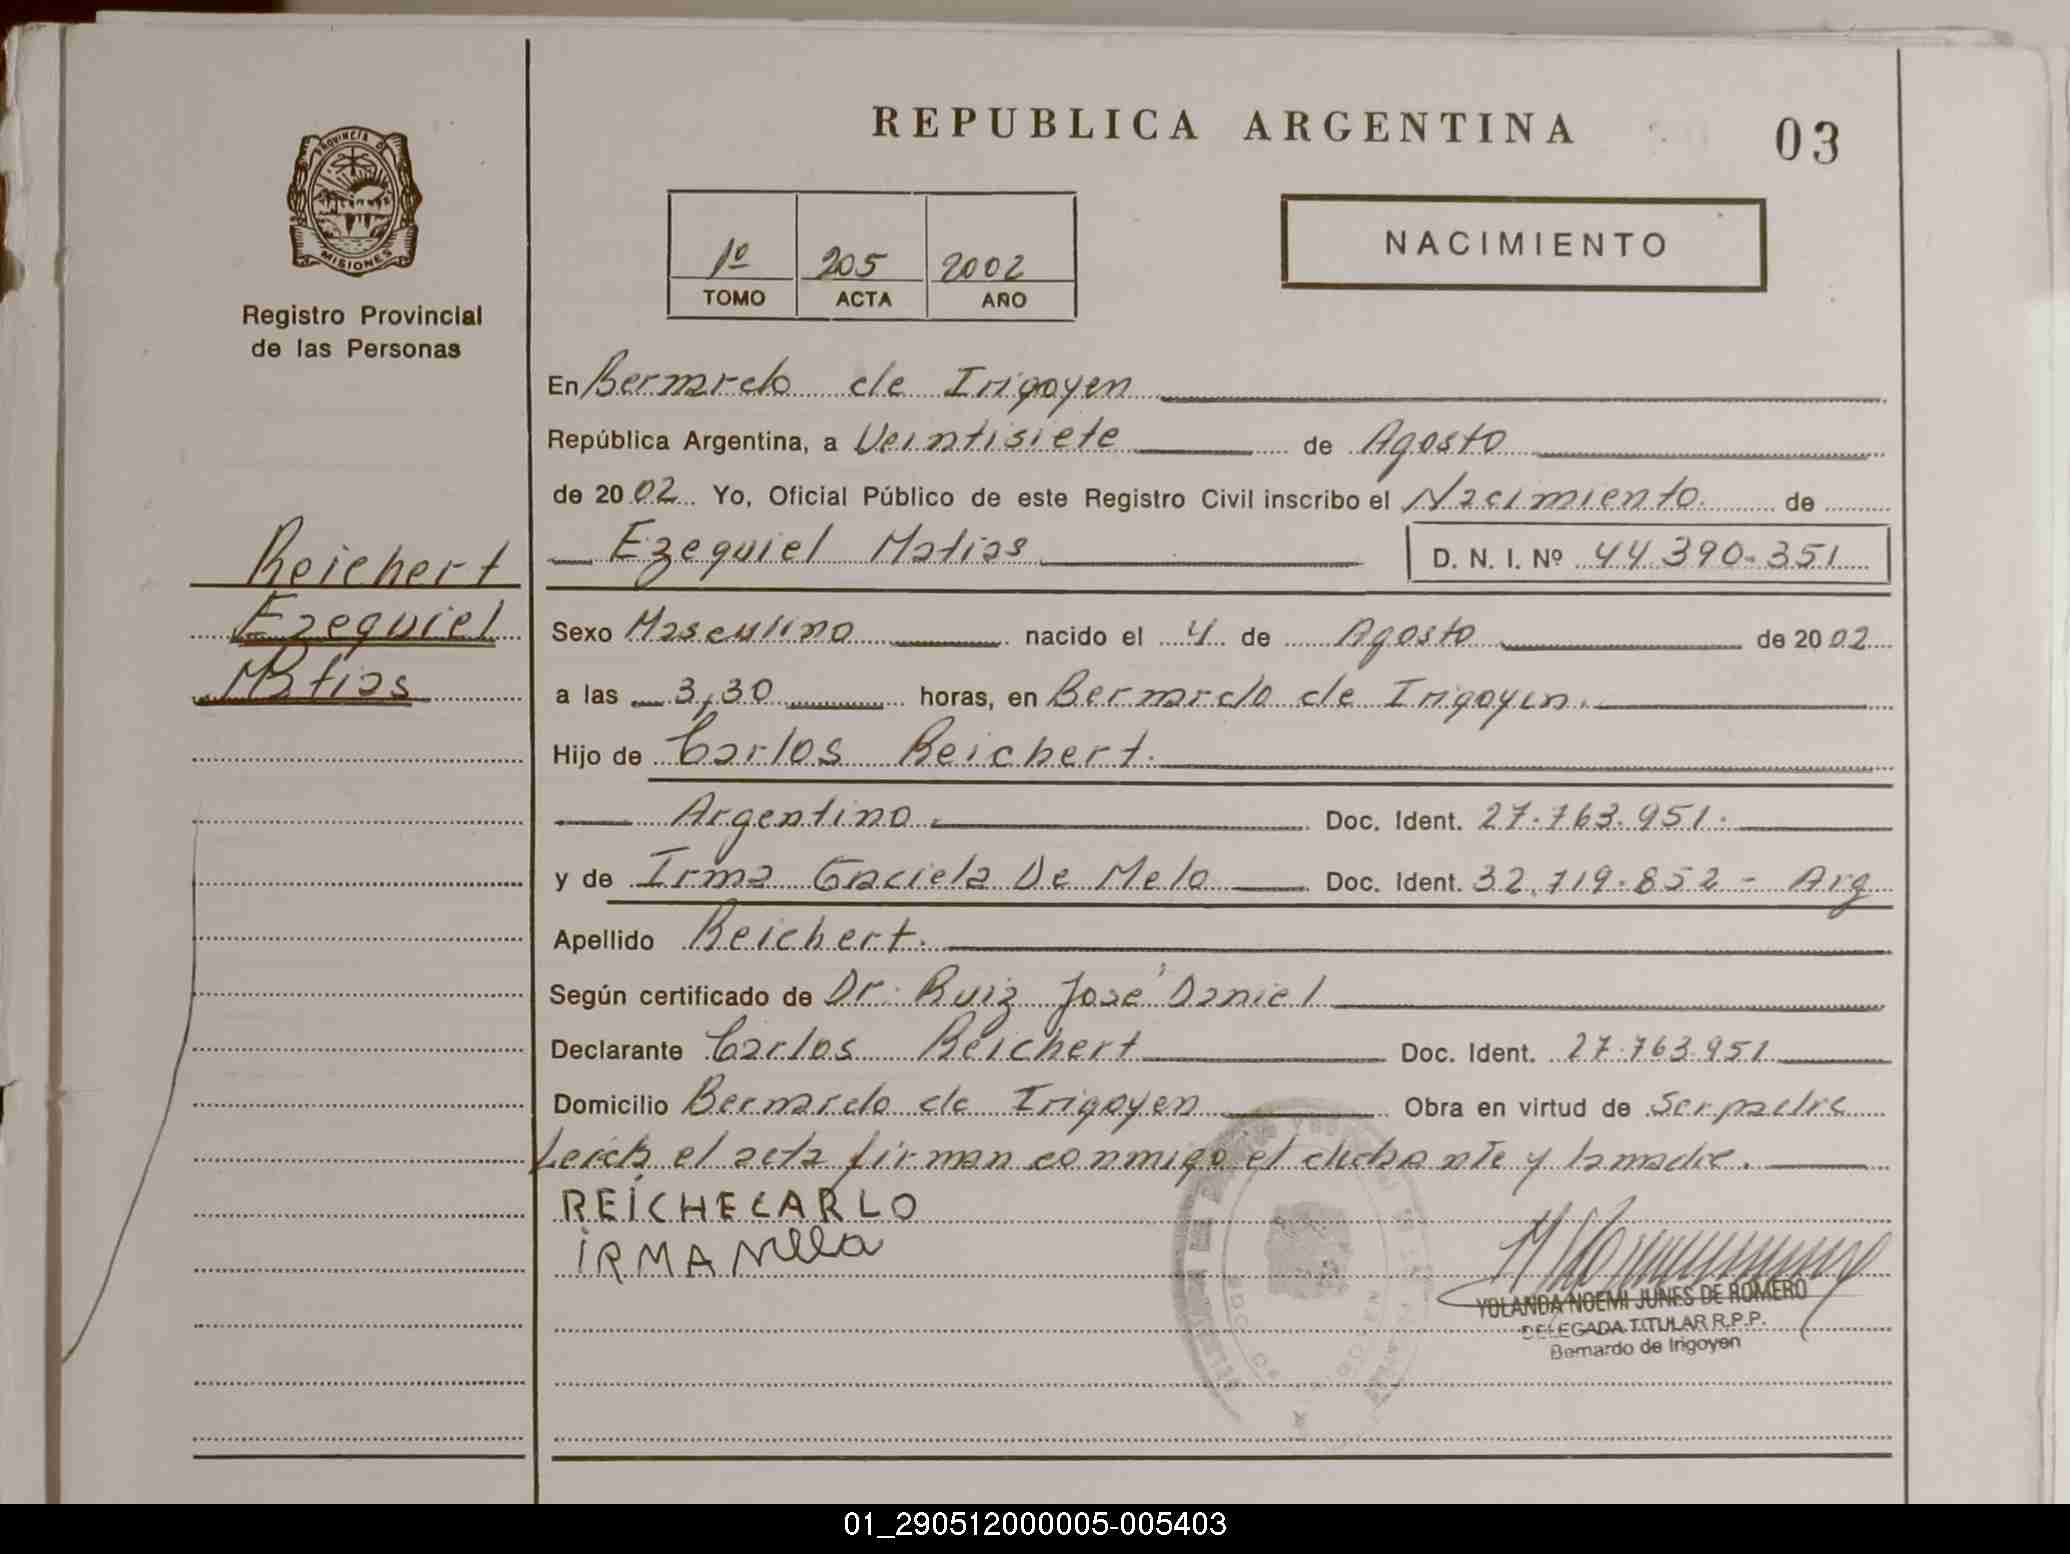 REPUBLICA ARGENTINA
03
PROVINCIA DE
MISIONES
Registro Provincial
de las Personas
1º 205 2002
TOMO ACTA AÑO
NACIMIENTO
En Bernardo de Irigoyen
República Argentina, a Veintisiete de Agosto
de 2002 Yo, Oficial Público de este Registro Civil inscribo el Nacimiento de
Ezequiel Matias D. N. I. Nº 44.390.351
Reichert
Ezequiel
Matias
Sexo Masculino nacido el 4 de Agosto de 2002
a las 3,30 horas, en Bernardo de Irigoyen.
Hijo de Carlos Reichert.
Argentino. Doc. Ident. 27.763.951.
y de Irma Graciela De Melo Doc. Ident. 32.719.852 - Arg
Apellido Reichert.
Según certificado de Dr. Ruiz José Daniel
Declarante Carlos Reichert Doc. Ident. 27.763.951
Domicilio Bernardo de Irigoyen Obra en virtud de Ser padre
Leida el acta firman conmigo el y la madre.
REÍCHECARLO
IRMA
YOLANDA NOEMI JUNES DE ROMERO
DELEGADA TITULAR R.P.P.
Bernardo de Irigoyen
01_290512000005-005403